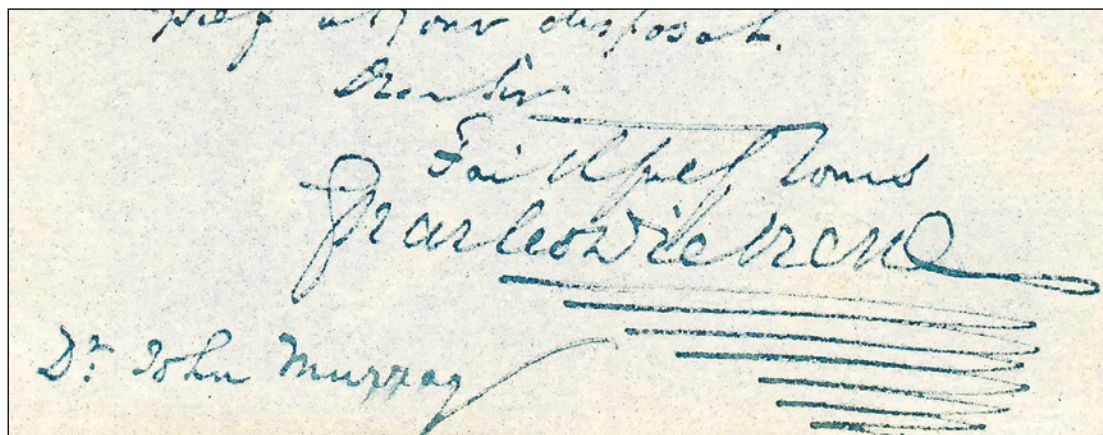 at your disposal.
Dear Sir
Faithfully Yours
Charles Dickens
Dr. John Murray